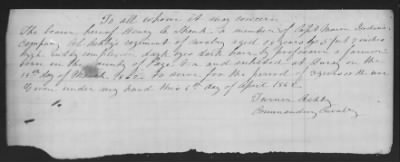 To all whom it may concern
The bearer hereof Henry C. a member of Capt Macon Jordan's
Company Col Ashby's regiment of cavalry aged 19 years 5 feet 8 inches
high ruddy complexion, dark eyes dark hair, by profession a farmer
born in the County of Page Va and enlisted at Luray on the
day of March 1862 to serve for the period of the war
Given under my hand this 6th day of April 1862
Turner Ashby
Commanding Cavalry